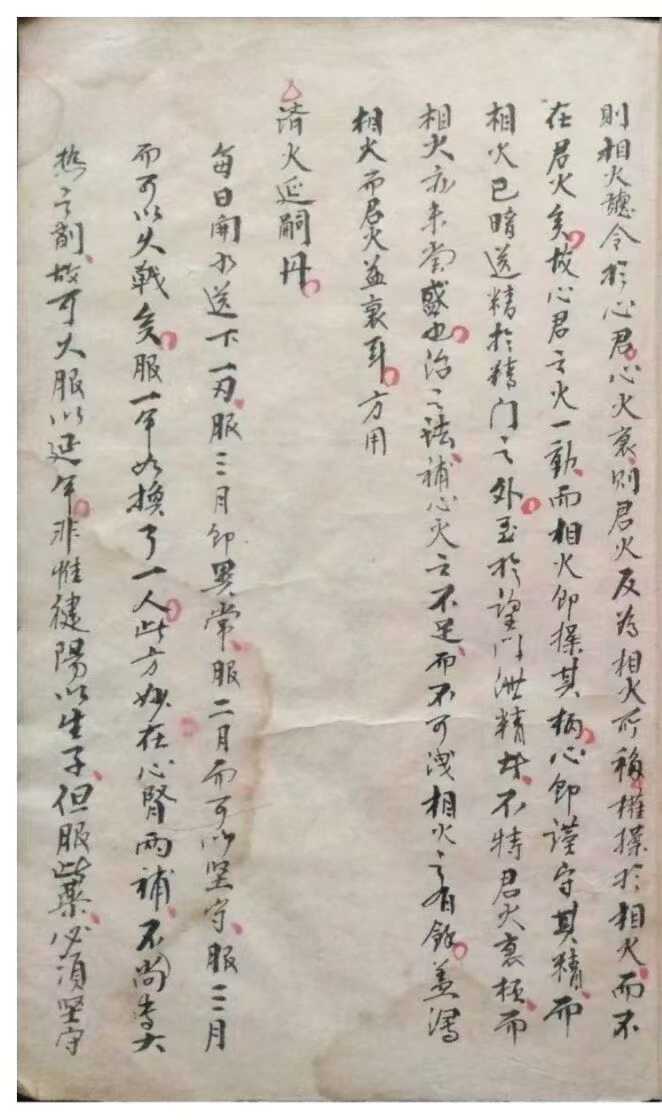 則相火聽令於心君。心火衰、則君火反為相火所移、權操於相火、而不
在君火矣。故心君之火一動、而相火即操其柄。心即謹守其精、而
相火已暗送精於精门之外。至於望门泄精者、不特君火衰極、而
相火亦未嘗盛也。治之法、補心火之不足、而不可洩相火之有餘。盖瀉
相火而君火益衰耳。方用
濟火延嗣丹。
每日開水送下一刃、服三月即異常、服二月而可以坚守、服三月
而可以久戰矣。服一年如換了一人。此方妙在心腎兩補、不尚専大
热之劑、故可久服以延年。非惟健陽以生子、但服此藥、必須坚守